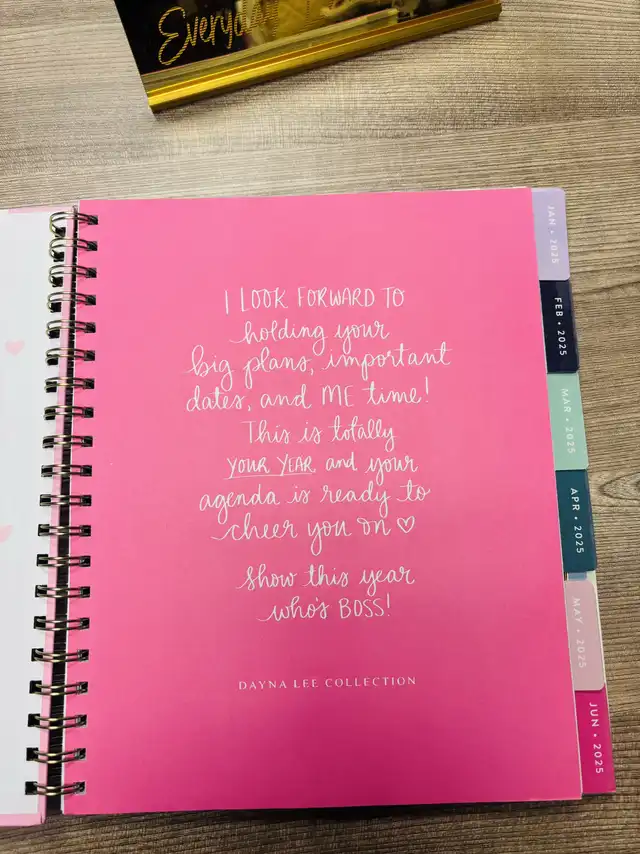 Everyday
I LOOK FORWARD TO
holding your
big plans, important
dates, and ME time!
This is totally
YOUR YEAR and your
agenda is ready to
cheer you on ♡
Show this year
who's BOSS!
DAYNA LEE COLLECTION
JAN • 2025
FEB • 2025
MAR • 2025
APR • 2025
MAY • 2025
JUN • 2025